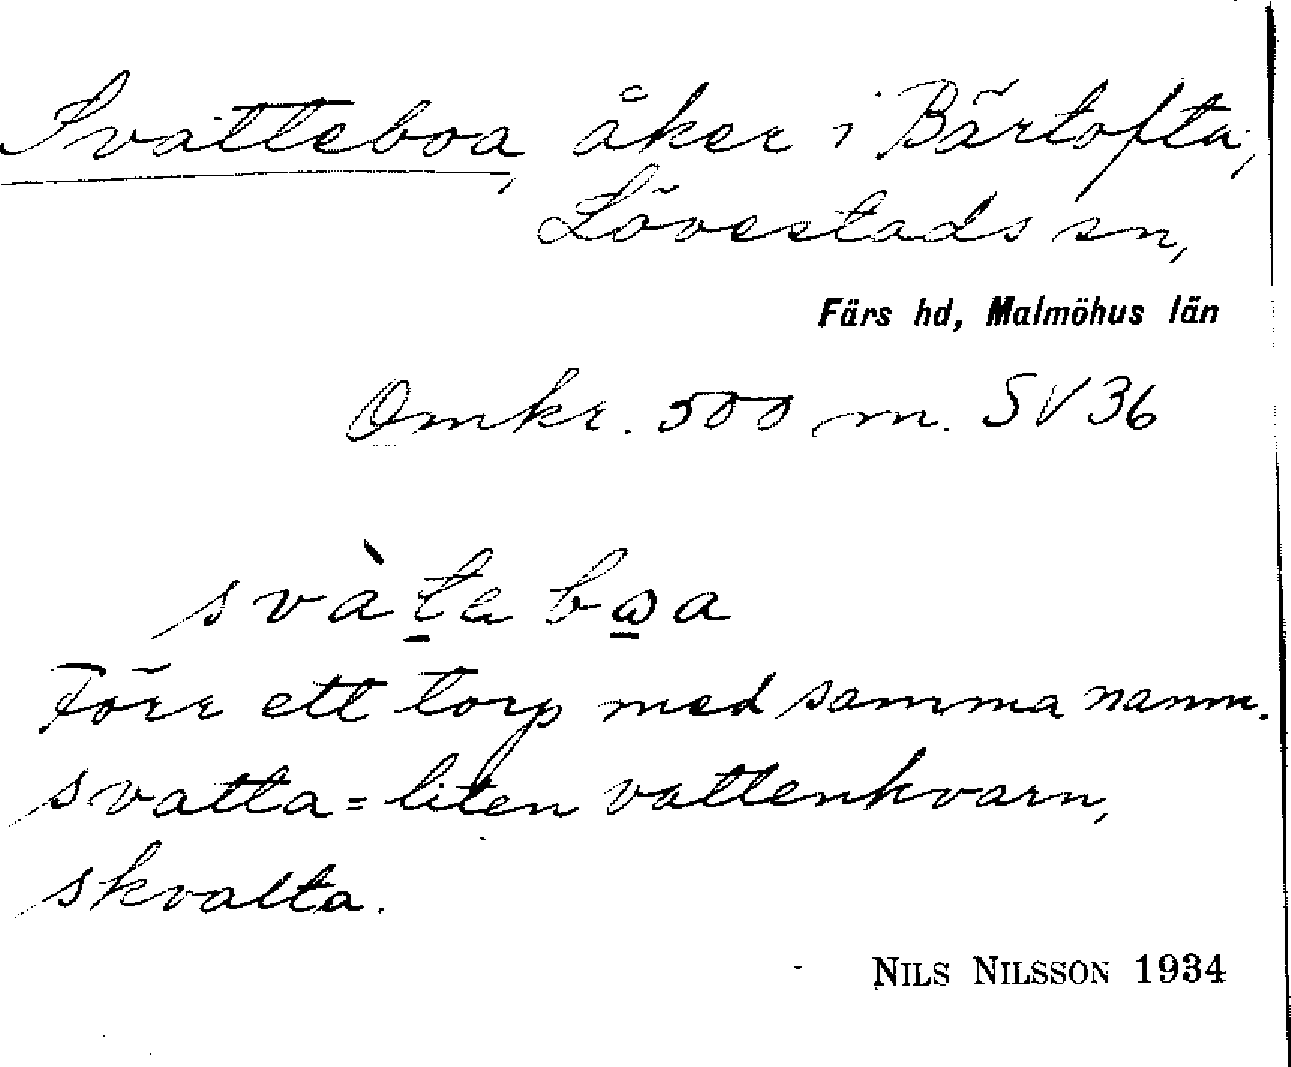 Svatteboa, åker i Bärtofta,
Lövestads sn,
Färs hd, Malmöhus län
Omkr. 500 m. SV 36
svàtebωa
Förr ett torp med samma namn.
svatta = liten vattenkvarn,
skvalta.
NILS NILSSON 1934